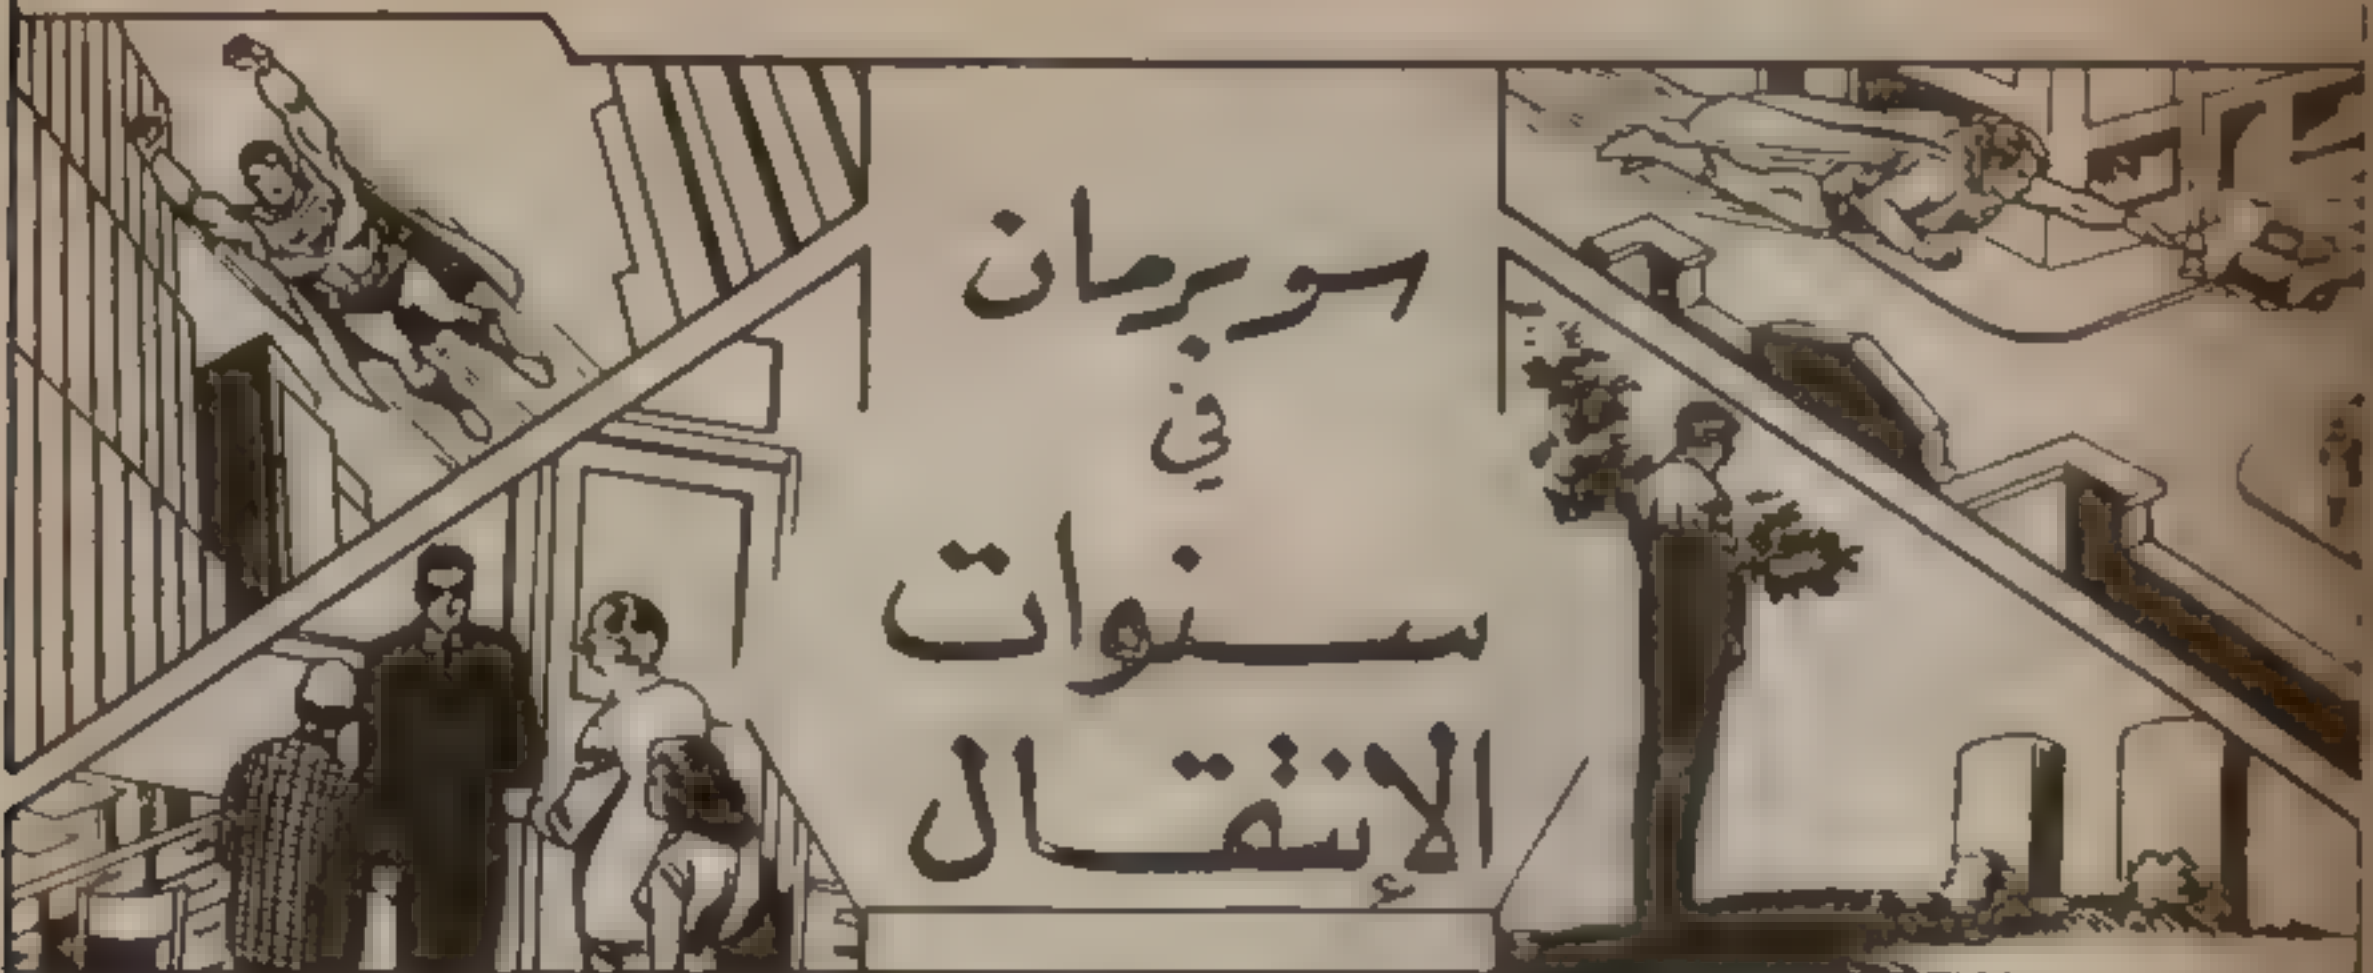 سوبرمان
في
سنوات
الإنتقال